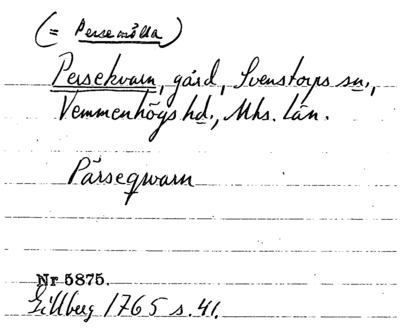 (= Persemölla)
Persekvarn, gård, Svenstorps sn.,
Vemmenhögs hd., Mhs. län.
Pärseqwarn
Nr 5875.
Gillberg 1765 s. 41.